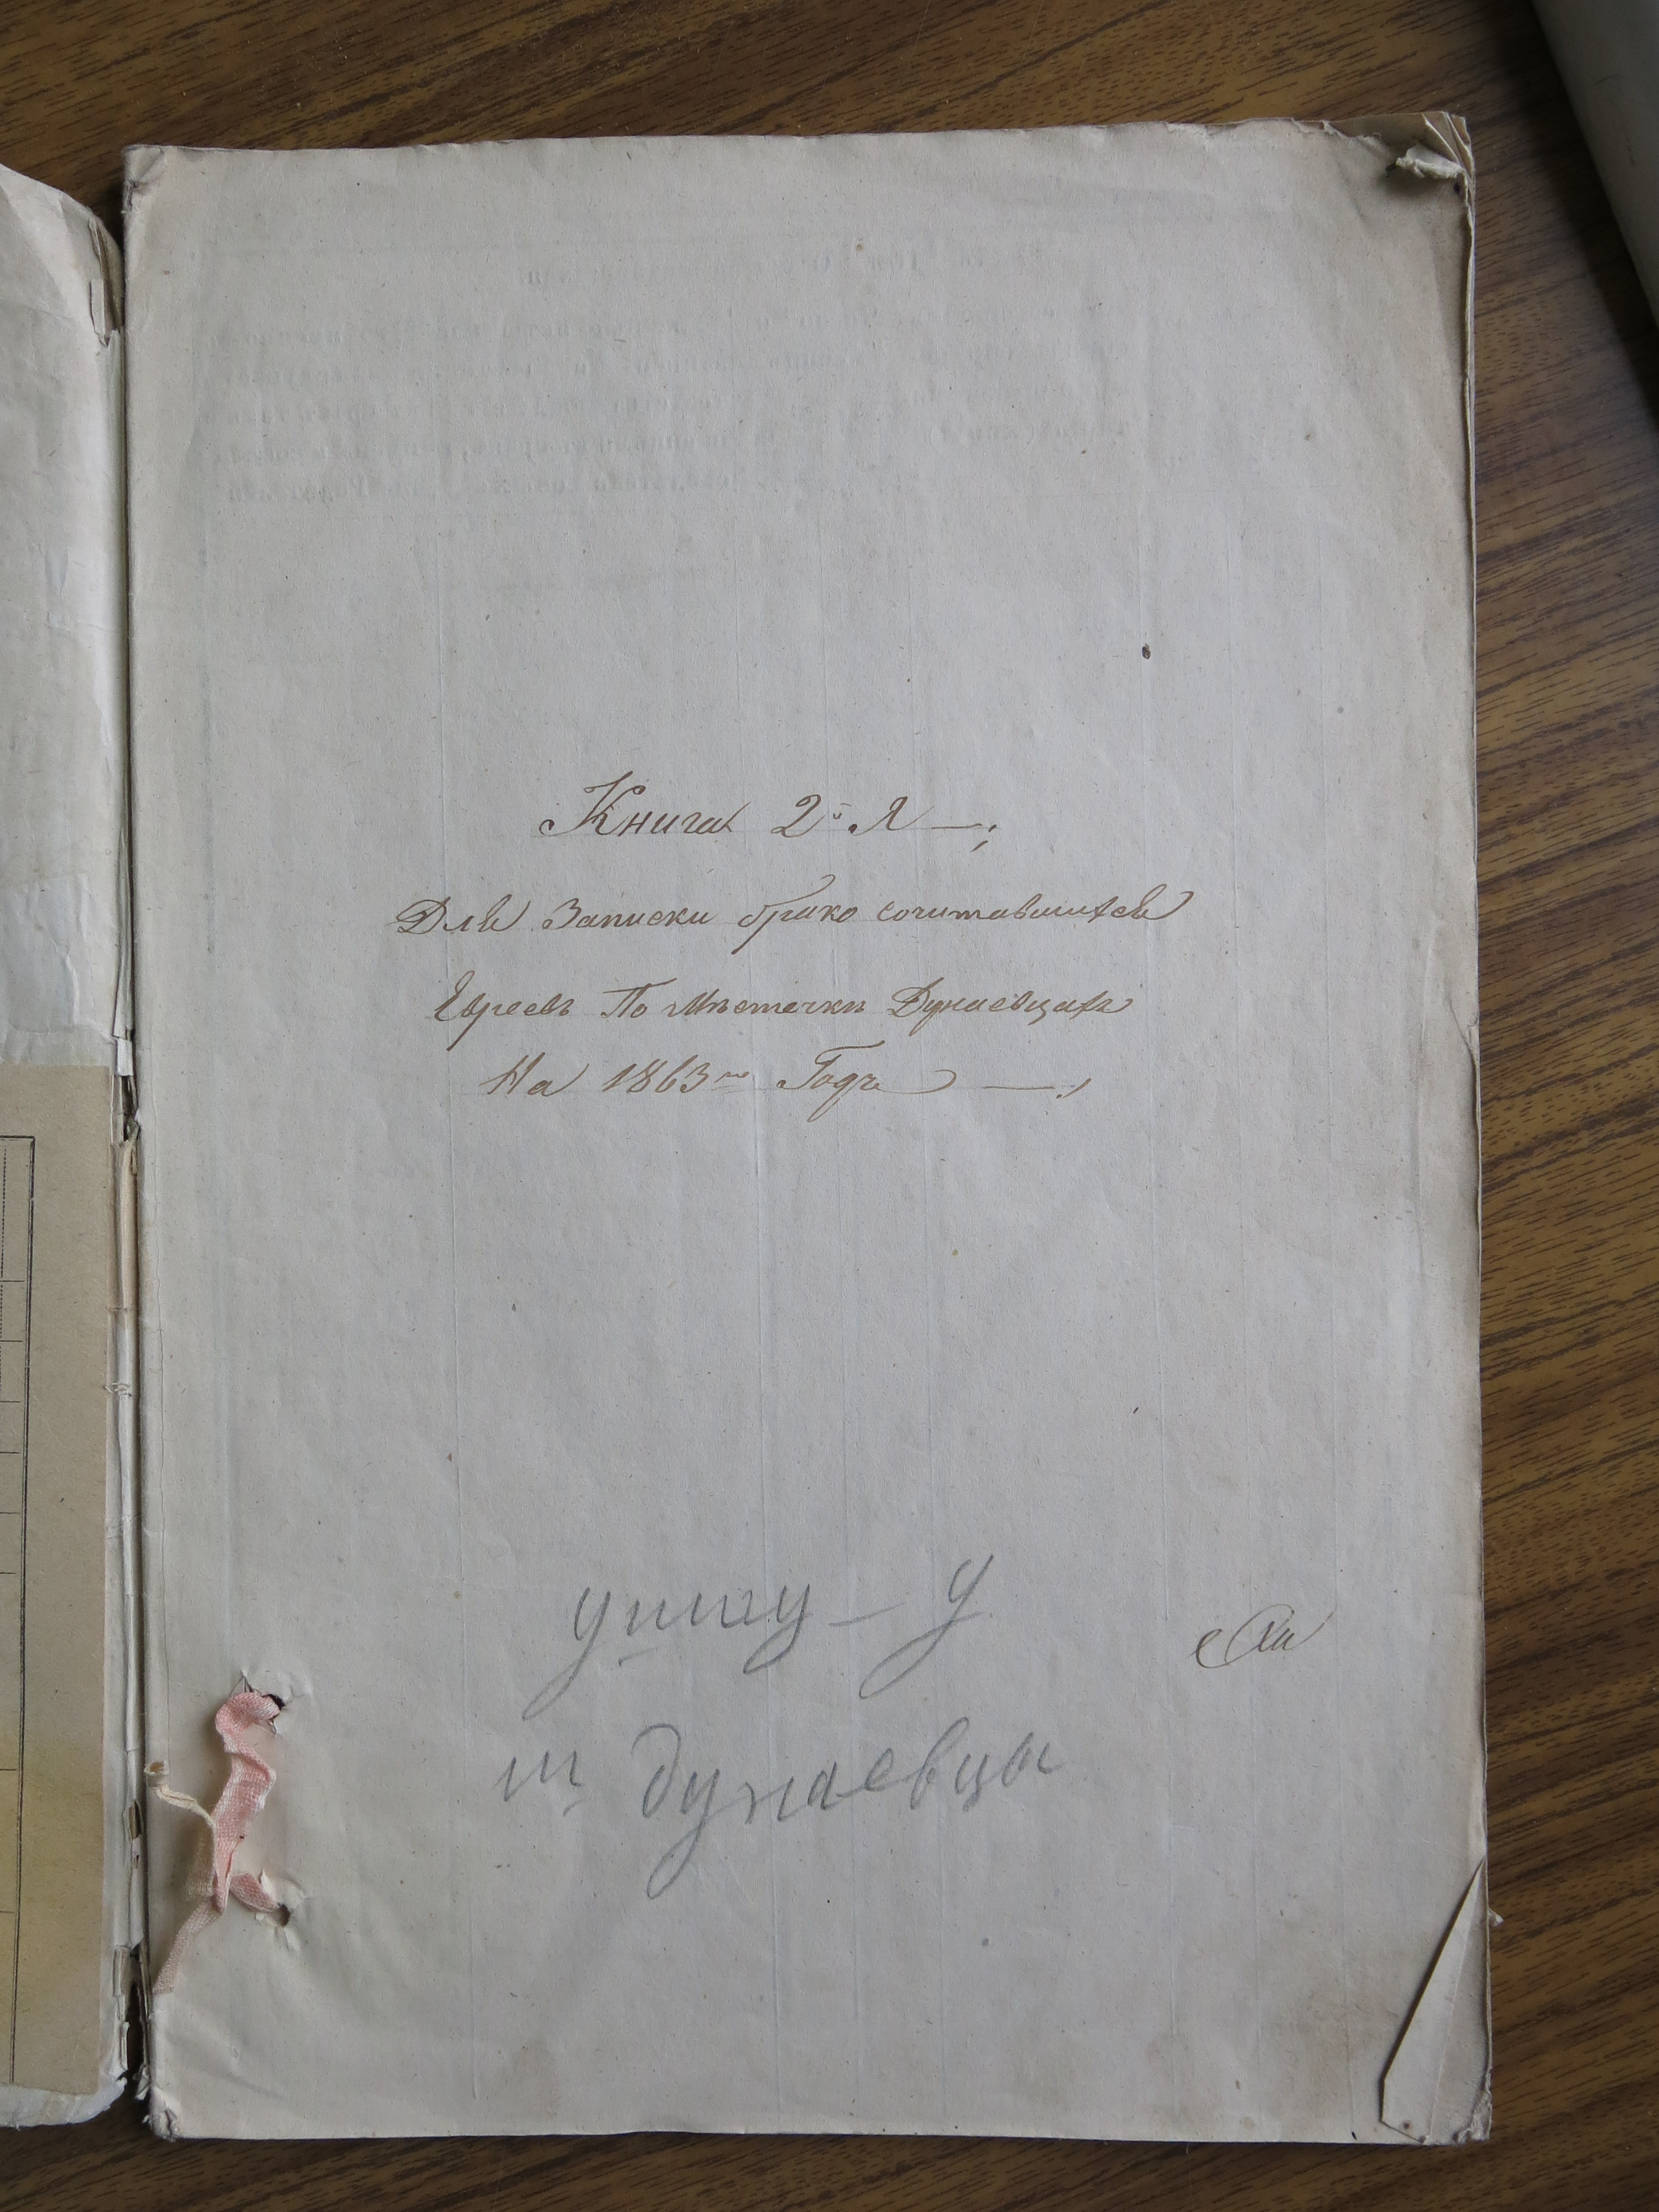 Книга 2я —;
Для Записки брако сочитавшихся
Евреевъ По Мѣстечкѣ Дунаевцахъ
На 1863й Годъ —;
ушцу – у
м дунаевцы